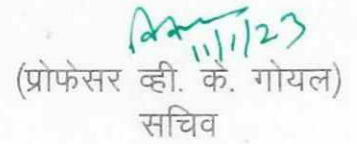 11/1/23
(प्रोफेसर व्ही. के. गोयल)
सचिव